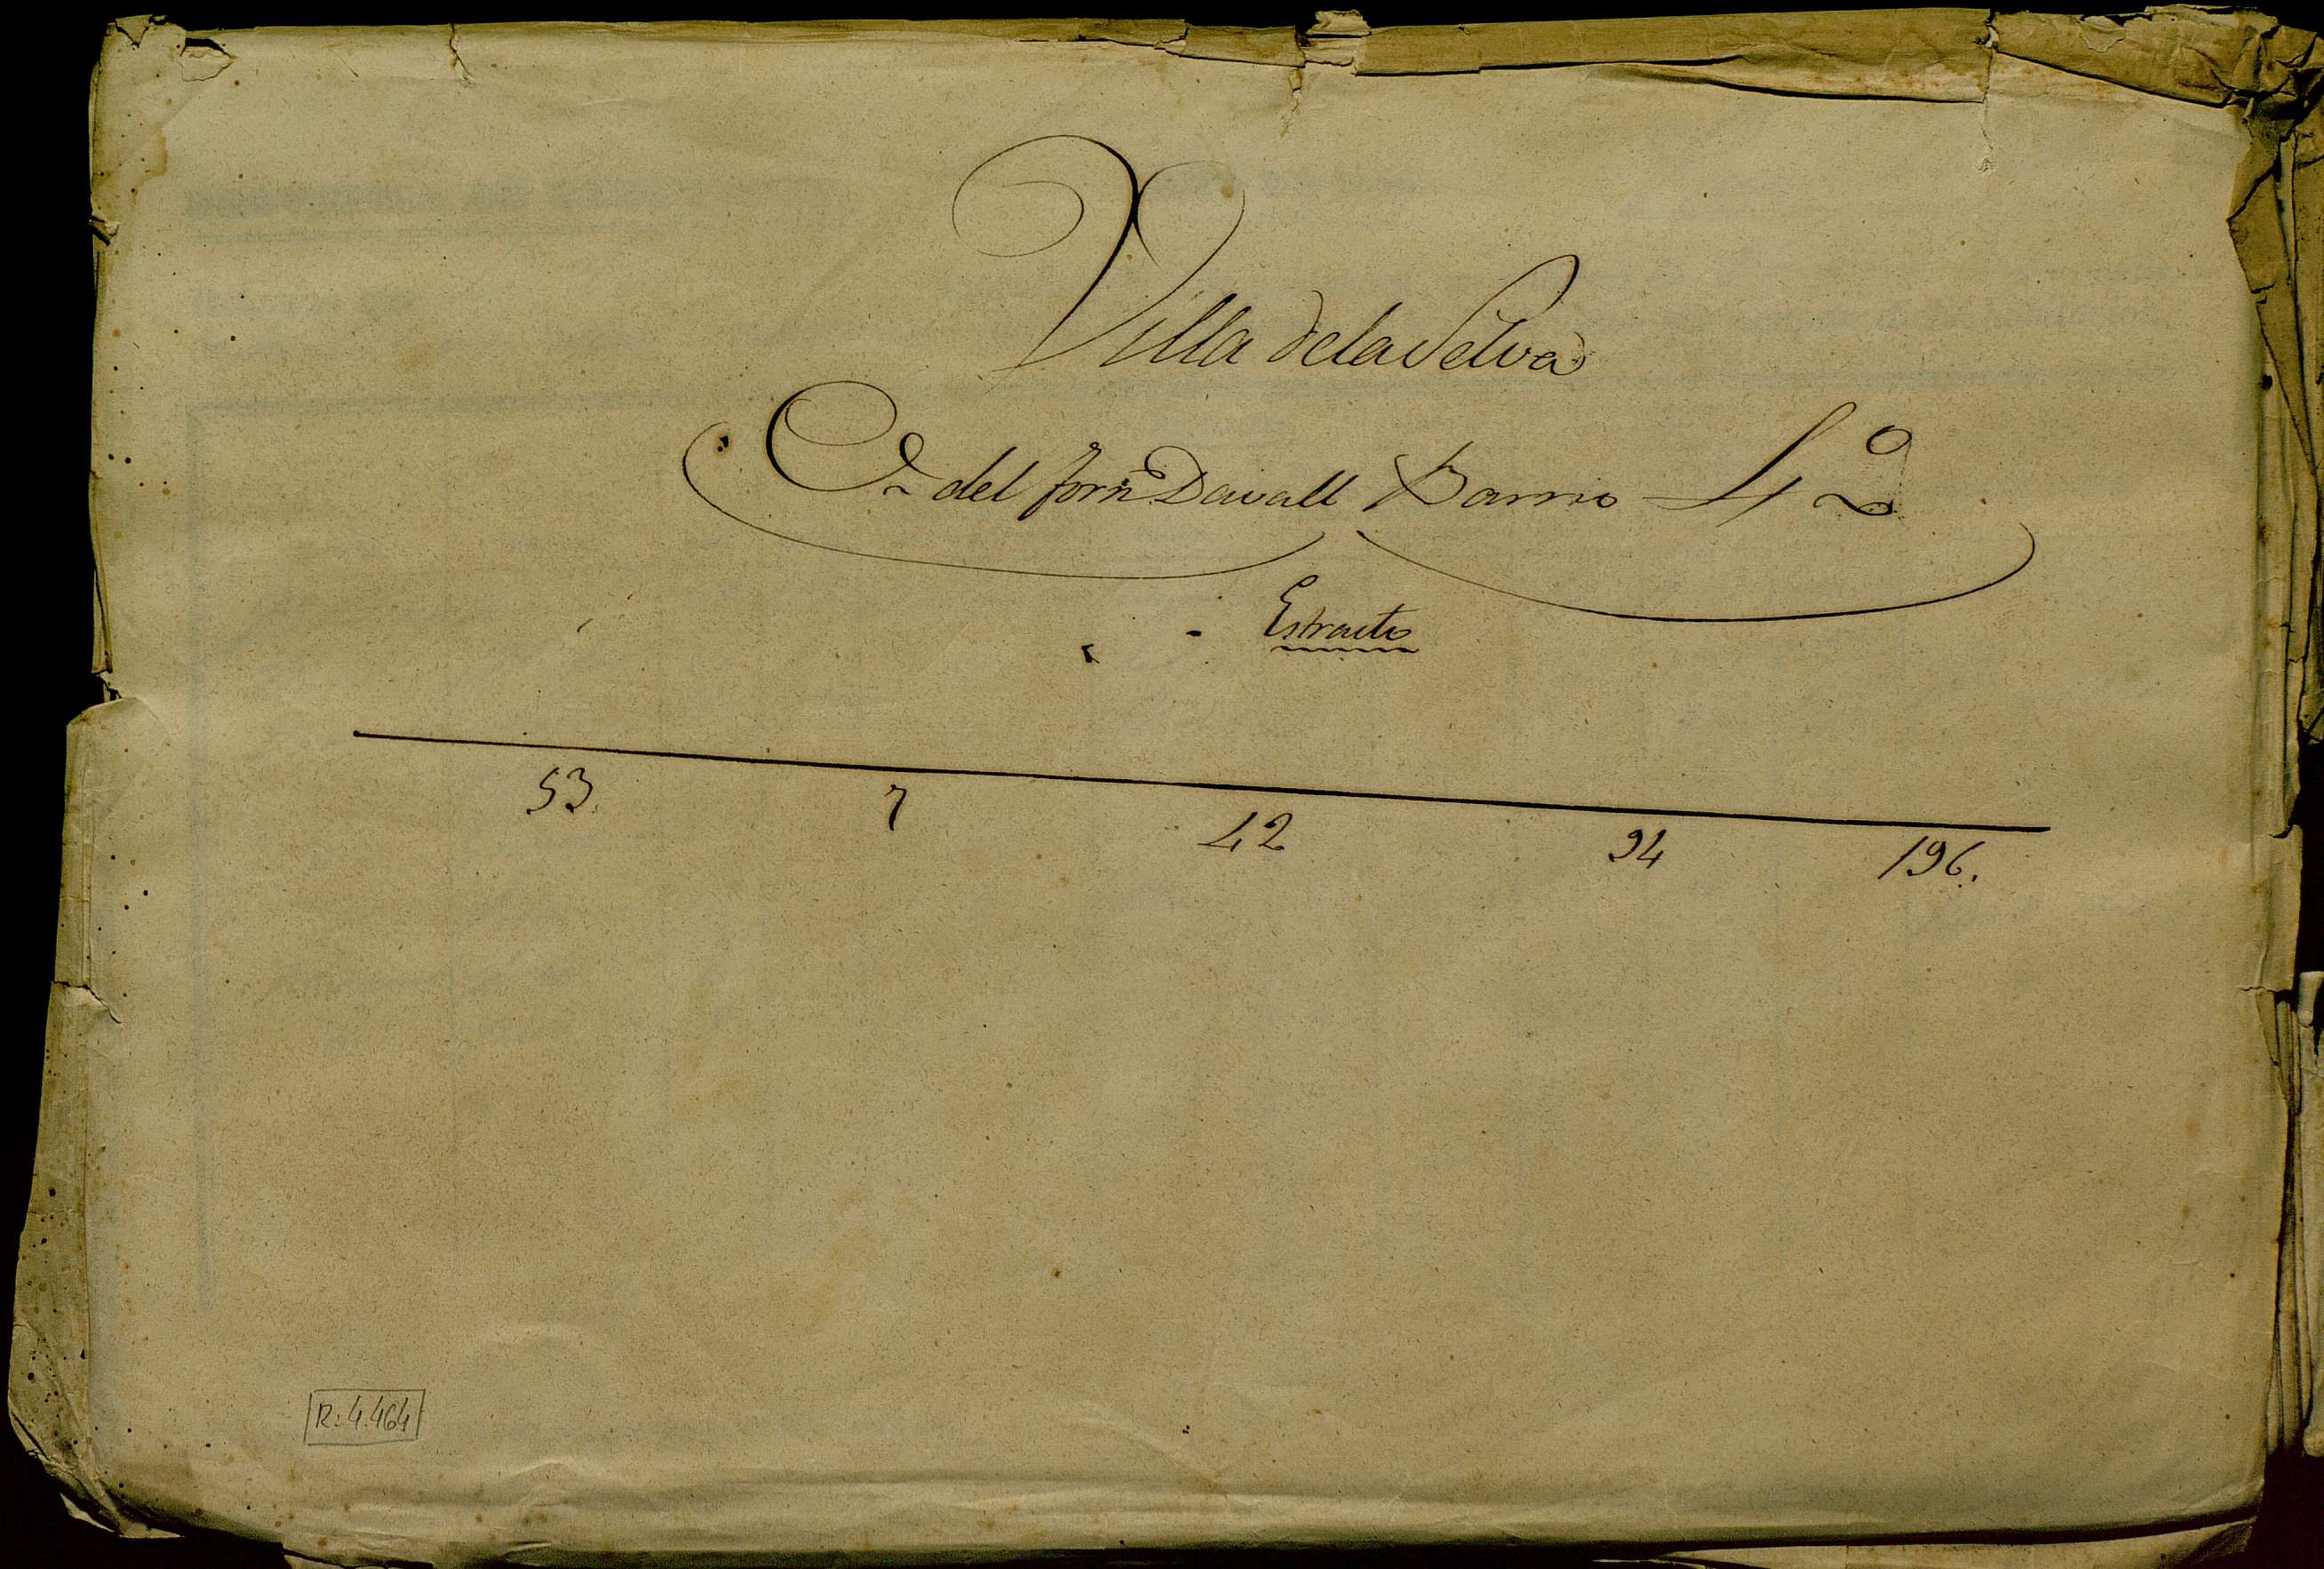 Villa de la Selva
C.ª del forn Davall Barrio 4º
Estracto
53. 7 42 94 196.
R: 4.464